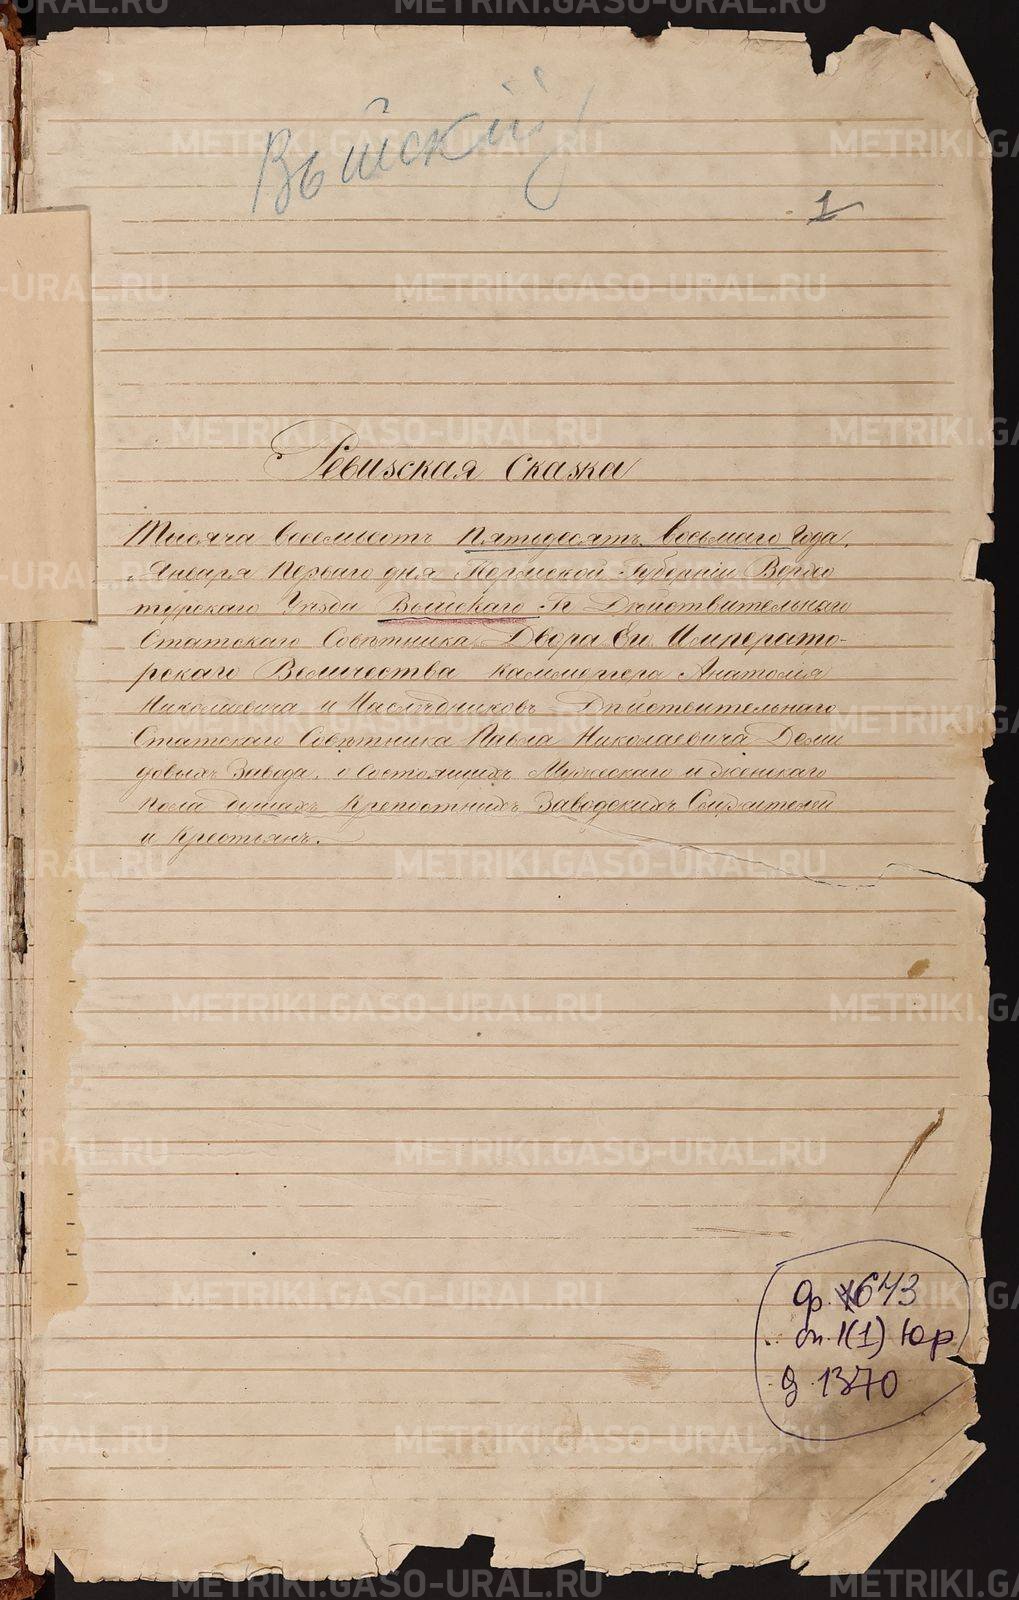 Выйскій
1
Ревизская Сказка
Тысяча восемьсотъ пятьдесятъ восьмаго года,
Января Перваго дня Пермской Губерніи Верхо
турскаго Уѣзда Выйскаго Гг. Дѣйствительнаго
Статскаго Совѣтника, Двора Его Императо-
рскаго Величества Каммергера Анатолія
Николаевича и Наслѣдниковъ Дѣйствительнаго
Статскаго Совѣтника Павла Николаевича Деми
довыхъ Завода, о состоящихъ Мужескаго и женскаго
пола душахъ Крепостныхъ Заводскихъ Служителей
и Крестьянъ.
ф. 643
оп. 1(1) Юр
д. 1370
METRIKI.GASO-URAL.RU